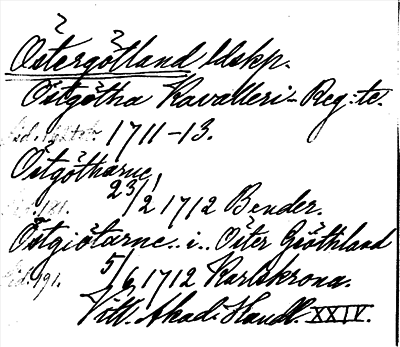 Östergötland ldskp.
Östgötha Kavalleri-Reg:te.
1711-13.
Östgötharne
Sid. 181. 23/2 1712 Bender.
Östgiötarne i Öster Giöthland
Sid. 991. 5/6 1712 Karlskrona.
Vitt. Akad. Handl. XXIV.